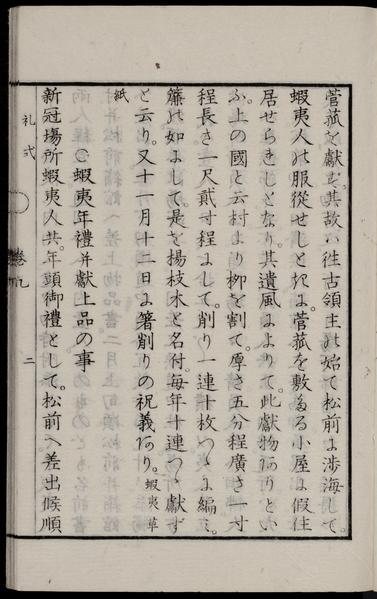 菅菰を献ず。其故ハ往古領主の始て松前に渉海して。
蝦夷人の服従せしときに。菅菰を敷たる小屋に仮住
居せられしとなり。其遺風によりて。此献物ありとい
ふ。上の國と云村より柳を割て。厚さ五分程廣さ一寸
程長さ一尺貳寸程にして。削り一連十枚つゝに編ミ。
簾の如にして。是を揚枝木と名付。毎年十連つゝ献ず
と云り。又十一月十二日に箸削りの祝義あり。蝦夷草
紙
〇蝦夷年禮并獻上品の事
新冠場所蝦夷人共。年頭御禮として。松前へ差出候順
礼式
巻九
二